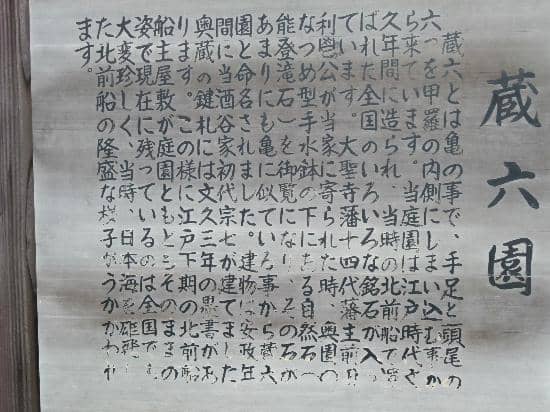 蔵六園
蔵六とは亀の事で、手足と頭尾の
六つを甲羅の内側にしまい込む事か
ら来ています。当庭園は江戸時代
久年間に造られ、当時の北前船で
ばれた全国のいろいろな銘石が入っ
ています。大聖寺藩十四代藩主前
利鬯公が当家に寄られた時、奥園の
なつめ型手水鉢の下にある自然石
能登滝石)を御覧になり、その石が
あまりにも亀に似ている事から蔵六
園と命名されました。建物は安政年
間に当酒谷家初代宗七が建てました
奥蔵の鍵札には文久三年の墨書があ
ります。この様に江戸下期の北前船
船主屋敷が庭園ともどもそのままの
姿で現在に残っているのは全国でも
大変珍しく、当時、日本海を雄飛し
た北前船の隆盛な様子がうかがわれ
ます。